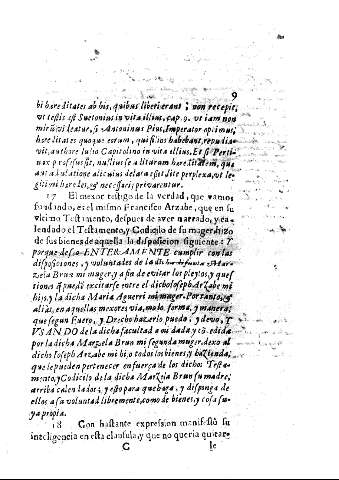 9
bi hæreditates ab his, quibus liberi erant; non recepit,
vt testis est Suetonius in vita illius, cap. 9. vt iam non
leatur, si Antoninus Pius, Imperator optimus,
hæreditates quoque eorum, qui filios habebant, repudia-
vit, authore Iulio Capitolino in vita illius. Et si Perti-
nax professus sit, nullius se aditurum hæreditatem, quæ
aut adulatione alicuius delata esset perplexa, vt le-
gitimi hæredes, & necessarij privarentur.
17 El mexor testigo de la verdad, que vamos
fundando, es el mismo Francisco Arzabe, que en su
vltimo Testamento, despues de aver narrado, y ca-
lendado el Testamento, y Codicilo de su mager hizo
de sus bienes de aquella la disposicion siguiente: Y
porque deseo ENTERAMENTE cumplir con las
disposiciones, y voluntades de la dicha Mar-
zela Brun mi muger, y a fin de evitar los pleytos, y ques-
tiones q̃ puedẽ excitarse entre el dicho Ioseph Arzabe mi
hijo, y la dicha Maria Aguerri mi muger. Por tanto, &
alias, en aquellas mexores via, modo, forma, y manera,
que segun Fuero, y Drecho hazerlo puedo, y devo, Y
VSANDO de la dicha facultad a mi dada, y cõcedida
por la dicha Marzela Brun mi segunda muger, dexo al
dicho Ioseph Arzabe mi hijo, todos los bienes, y hazienda,
que le pueden pertenecer en fuerza de los dichos Testa-
mento, y Codicilo de la dicha Marzela Brun su madre,
arriba calendados; y esto para que haga, y disponga de
ellos a su voluntad libremente, como de bienes, y cosa su-
ya propia.
18 Con bastante expression manifestò su
inteligencia en esta clausula, y que no queria quitar-
C le